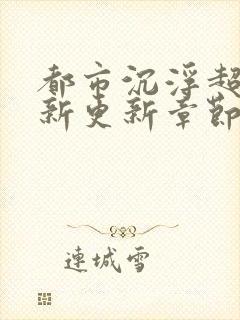 都市沉浮超
新更新章節
連城雪